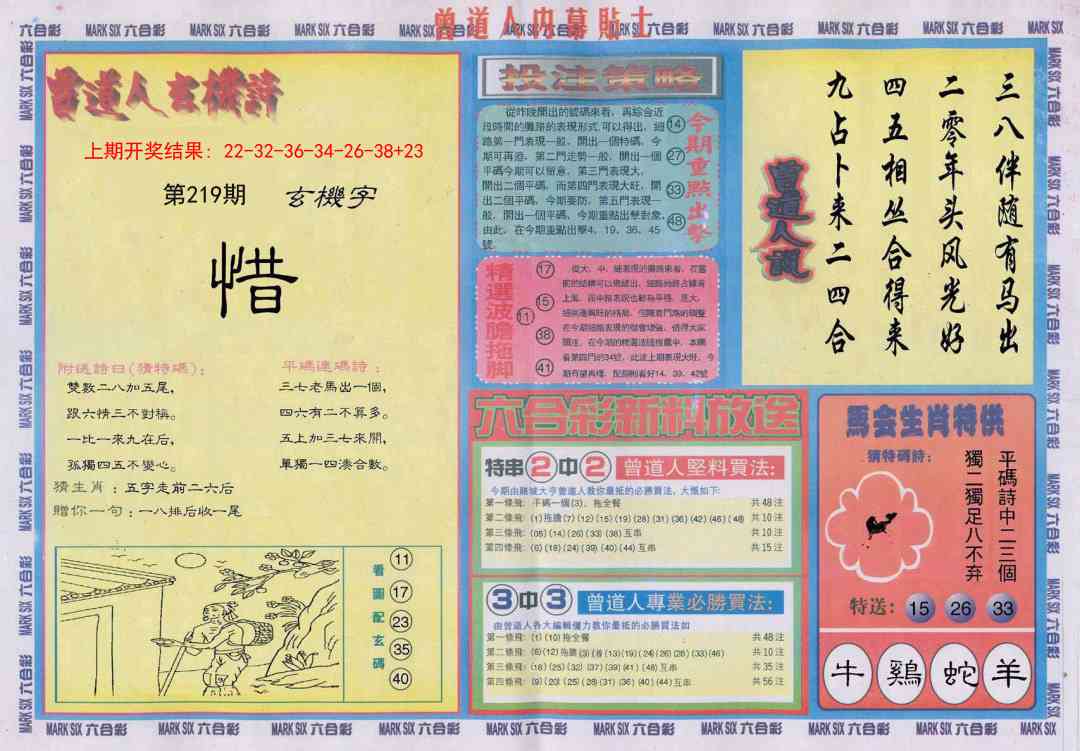 曾道人内幕貼士
曾道人玄機詩
上期开奖结果: 22-32-36-34-26-38+23
第219期 玄機字
惜
附送詩曰(猜特碼):
雙數二八加五尾,
跟六情三不對稱。
一比一來九在后,
孤獨四五不變心。
平碼連碼詩:
三七老馬出一個,
四六有二不算多。
五上加三七來開,
單獨一四湊合數。
猜生肖: 五字走前二六后
贈你一句: 一八排后收一尾
看圖配玄碼
11
17
23
35
40
投注策略
從昨晚開出的號碼來看, 再綜合近
段時間的攤路的表現形式, 可以得出, 細
路第一門表現一般, 開出一個特碼, 今
期可再追, 第二門走勢一般, 開出一個
平碼今期可以留意, 第三門表現大,
開出二個平碼, 而第四門表現大旺, 開
出二個平碼, 今期要防, 第五門表現一
般, 開出一個平碼, 今期重點出擊對象,
由此, 在今期重點出擊4、19、36、45
號
今期重點出擊
14
27
33
48
精選波膽拖脚
17
15
11
38
41
六合彩新料放送
特串2中2 曾道人堅料買法:
今期由賭城大亨曾道人教你最抵的必勝買法, 大慨如下:
第一條飛: 平碼一個(3), 拖全餐 共48注
第二條飛: (1)拖膽(7)(12)(15)(19)(28)(31)(36)(42)(46)(48) 共10注
第三條飛: (05)(14)(26)(33)(38)互串 共10注
第四條飛: (6)(18)(24)(39)(40)(44)互串 共15注
3中3 曾道人專業必勝買法:
由曾道人各大編輯僵力教你最抵的必勝買法如
第一條飛: (1)(10)拖全餐 共48注
第二條飛: (6)(12)拖膽(3)(善)(13)(19)(24)(26)(28)(33)(46) 共10注
第三條飛: (18)(25)(32)(37)(39)(41)(48)互串 共35注
第四條飛: (9)(20)(25)(28)(31)(36)(40)(44)互串 共56注
三八伴随有马出
二零年头风光好
四五相丛合得来
九占卜来二四合
曾道人說
馬会生肖特供
猜特碼詩:
平碼詩中二三個
獨二獨足八不弃
特送: 15 26 33
牛 鷄 蛇 羊
MARK SIX 六合彩